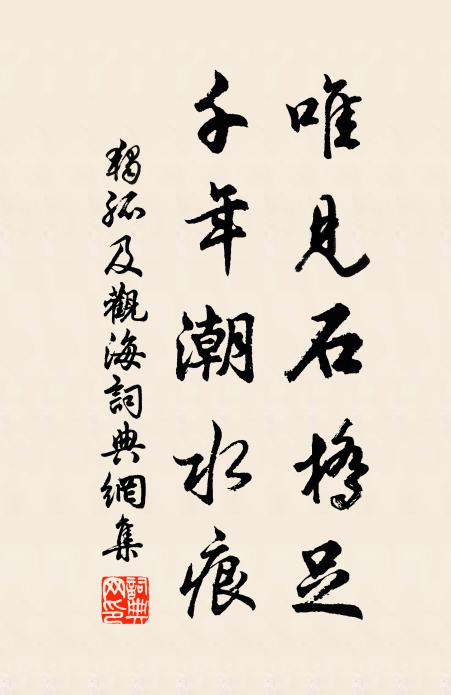 唯見石橋足
千年潮水痕
獨孤及觀海詞典網集
詞典网印